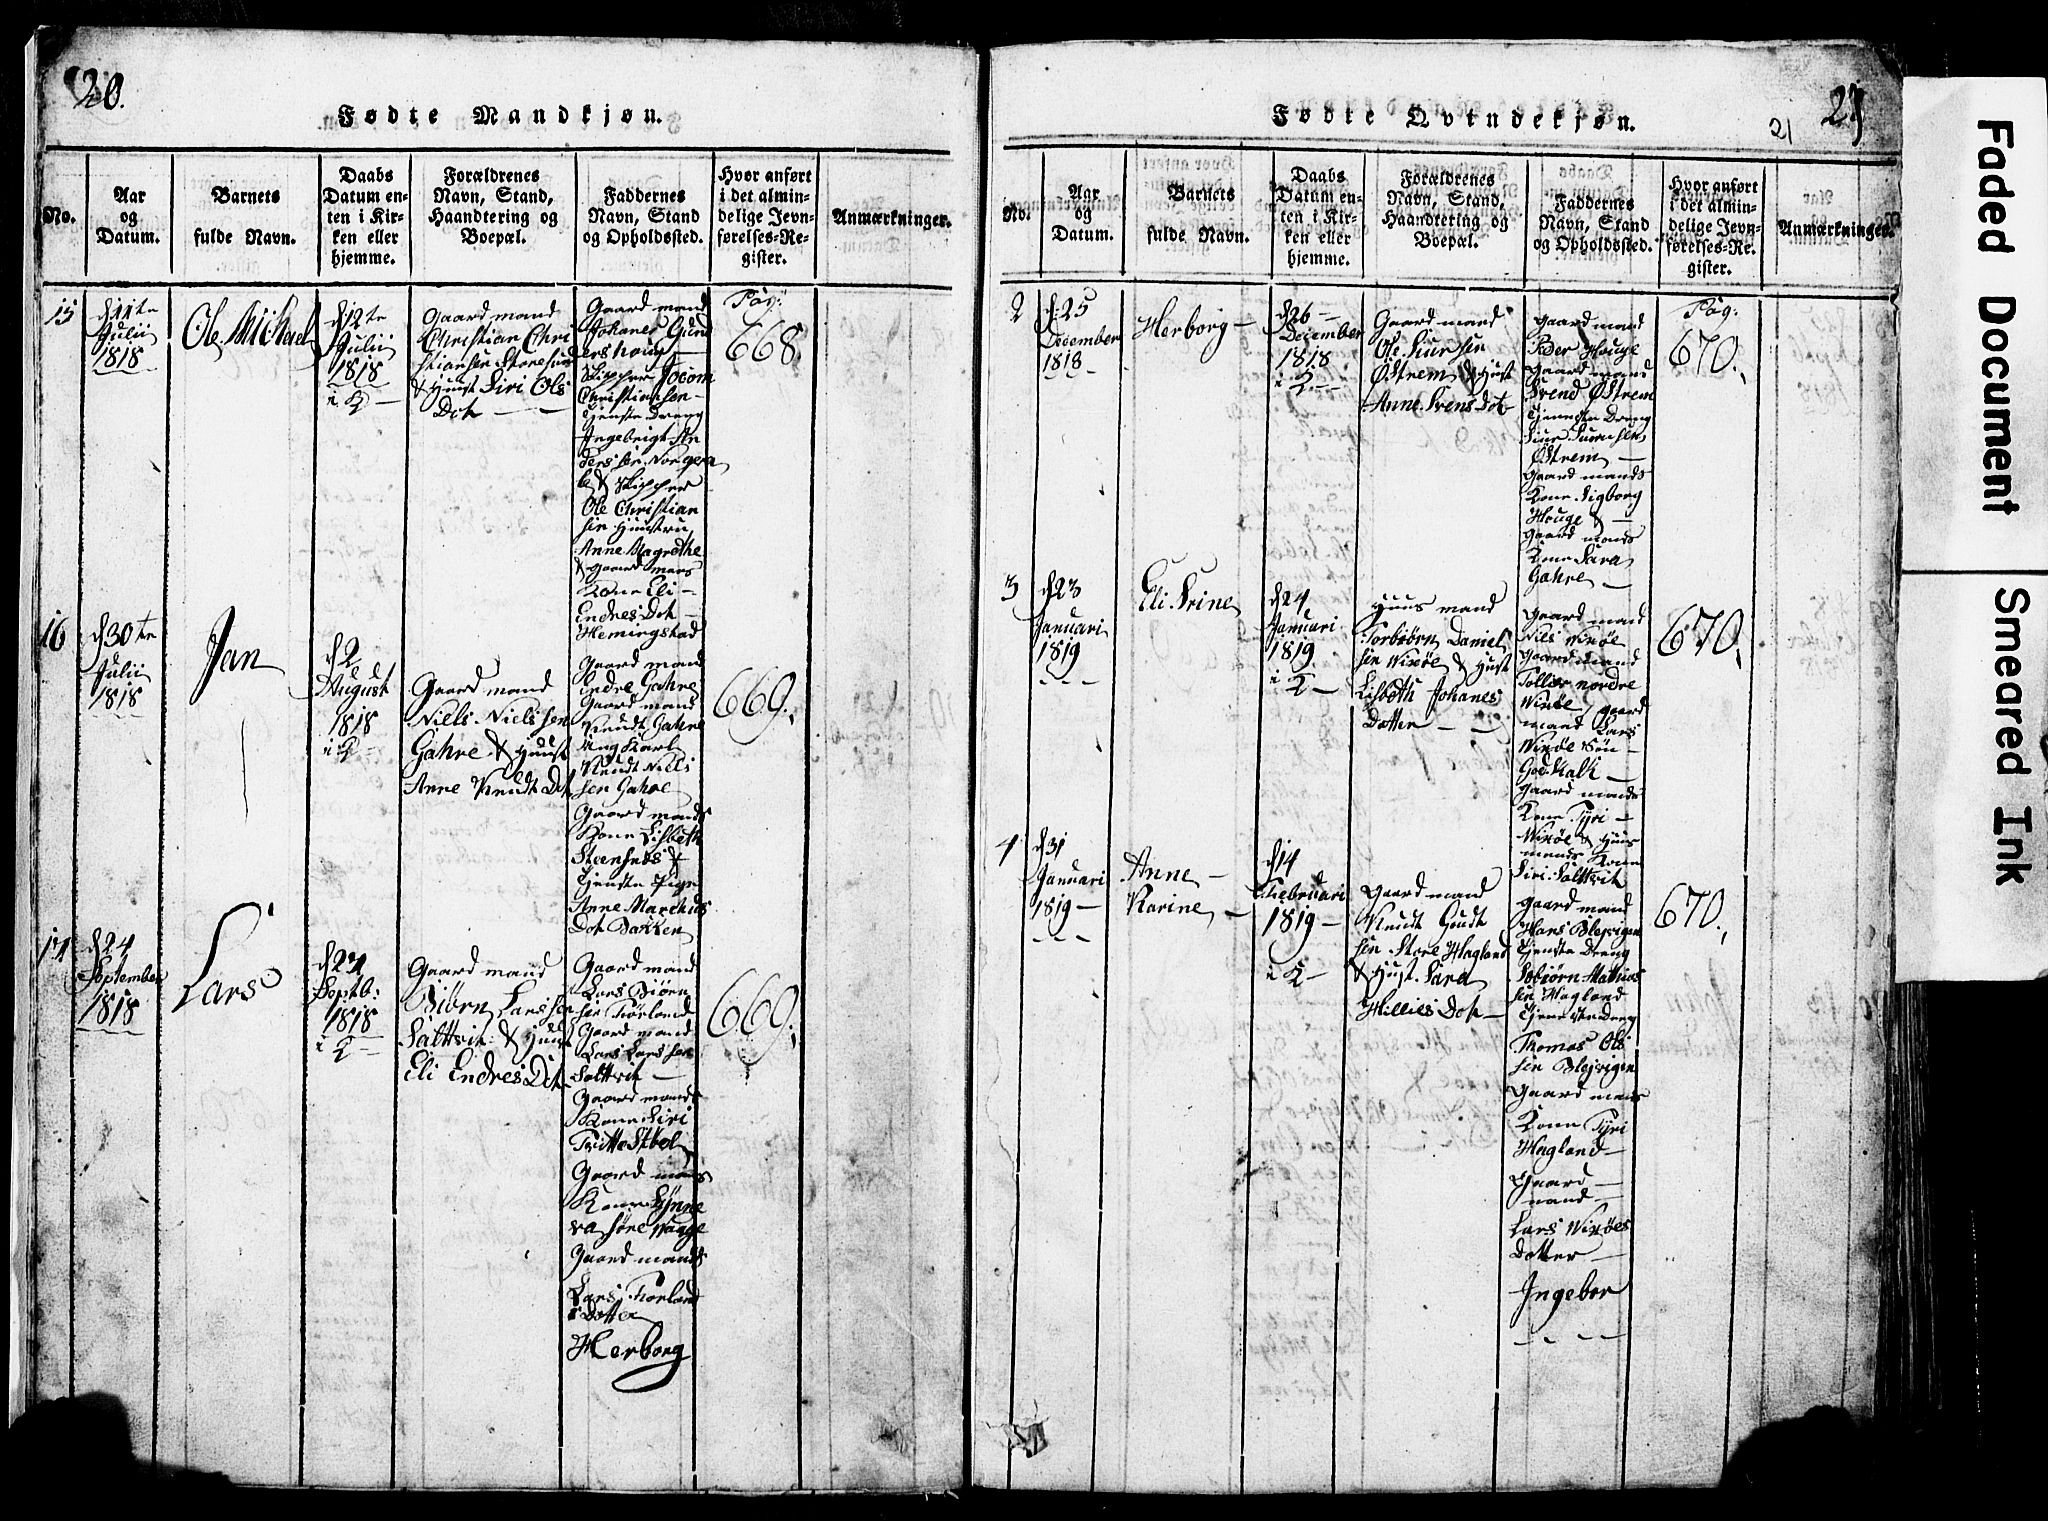 20.
Fødte Mandkjøn.
No.
Aar
og
Datum.
Barnets
fulde Navn.
Daabs
Datum en-
ten i Kir-
ken eller
hjemme.
Forældrenes
Navn, Stand,
Haandtering og
Boepæl.
Faddernes
Navn, Stand
og Opholdssted.
Hvor anført
i det almin-
delige Jevn-
førelses-Re-
gister.
Anmærkninger.
15
d 11te
Julii
1818
Ole Michael
d 12te
Julii
1818
i K
Gaard mand
Christian Chri
stiansen
& Hust Siri Ols
Dot
Gaard mand
Johanes
Skipper Jocom
Christiansen
tjeneste Dreng
Ingebrigt An
dersen
& Skipper
Ole Christian
sen Hustru
Anne Magrethe
& gaard mans
Kone Eli
Endres Dot
Hemingstad
Pag:
668
16
d 30te
Julii
1818
Jan
d 2
August
1818
i K
Gaard mand
Niels Nielssen
Gahre & Hust
Anne Knudt Dot
Gaard mand
Endre Gahre
Gaard mand
Knudt Gahre
Ung Karl
Knudt Niels
sen Gahre
Gaard mands
Kone Lisbeth
Steensnes &
tjeneste Pige
Anne Marckus
Dot Bakken
669.
17
d 24
September
1818
Lars
d 27
Septb:
1818
i K
Gaard mand
Biørn Larssen
Saltvit & Hust
Eli Endres Dot
Gaard mand
Lars Biørn
sen Førland
Gaard mand
Lars Larssen
Saltvit
Gaard mands
Kone Siri
Gaard mans
Kone Synne
va Søre Vaage
Gaard mands
Lars Førland
s Dotter
Herborg
669.
21
21
Fødte Qvindekjøn.
No.
Aar
og
Datum.
Barnets
fulde Navn.
Daabs
Datum en-
ten i Kir-
ken eller
hjemme.
Forældrenes
Navn, Stand,
Haandtering og
Boepæl.
Faddernes
Navn, Stand
og Opholdssted.
Hvor anført
i det almin-
delige Jevn-
førelses-Re-
gister.
Anmærkninger.
2
d: 25
December
1818
Herborg
d 26
December
1818
i K
Gaard mand
Ole Siursen
Østrem & Hust
Anne Svens Dot
gaard mand
Peder Houge
gaard mand
Svend Østrem
tjeneste Dreng
Siur Siursen
Østrem
gaard mands
Kone Sigborg
Houge &
gaard mands
Kone Sara
Gahre
Pag:
670.
3
d 23
Januari
1819
Eli Trine
d 24
Januari
1819
i K
Huus mand
Torbiørn Daniel
sen Wixøe & Hust
Lisbeth Johanes
Dotter
gaard mand
Niels Wixøe
gaard mand
Tollev nordre
Wixøe, gaard
mand Lars
Wixøe Søn
gaard mands
Kone Tyri
Wixøe & Huus
mands Kone
Siri Saltvit
670.
4
d 31
Januari
1819
Anne
Karine
d 14
Februari
1819
i K
Gaard mand
Knudt Gudt
sen Store Hagland
& Hust Sara
Hillies Dot
gaard mand
Hans Blejvigen
tjeneste Dreng
Tobiørn Mathias
sen Hagland
tjeneste Dreng
Thomas Ols
sen Blejvigen
gaard mans
Kone Tyri
Hagland
Gaard
mand
Lars Wixøes
Dotter
Ingebor
670.
Faded Document Smeared Ink